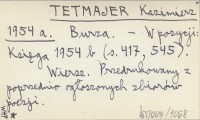 TETMAJER Kazimierz
1954 a. Burza. – W pozycji:
Księga 1954 b (s. 417, 545).
Wiersze. Przedrukowany z
poprzednio ogłoszonych zbiorów
poezji.